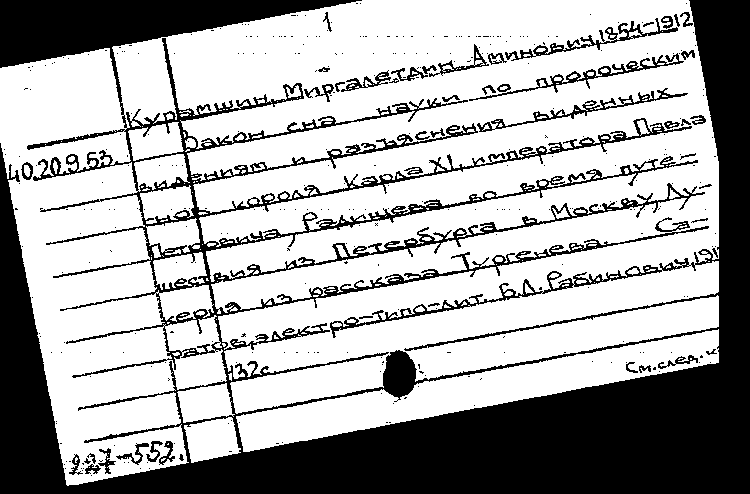 1
Курамшин, Миргалетдин Аминович, 1854-1912
Закон сна науки по пророческим
40.20.9.53.
видениям и разъяснения виденных
снов короля Карла XI, императора Павла
Петровича, Радищева во время путе-
шествия из Петербурга в Москву, Лу-
керия из рассказа Тургенева. Са-
ратов, электро-типо-лит. Б.Л. Рабинович, 191
132с.
См. след. к
227-552.